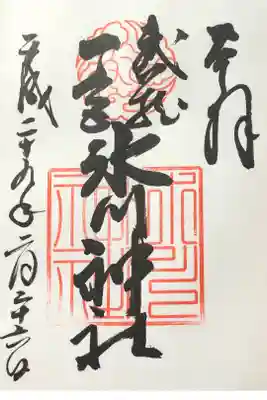 奉拝
武蔵
一宮
氷川神社
平成二十九年二月二十六日